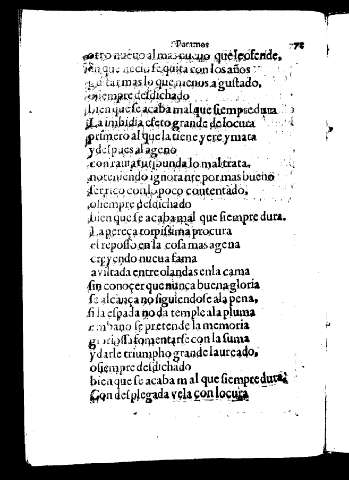 Paramos 78
otro nueuo al mas bueno que le ofende,
en que necio se quita con los años
mas lo que menos a gustado,
o siempre desdichado
bien que se acaba mal que siempre dura
La imbidia efeto grande de locura
primero al que la tiene yere y mata
y despues al ageno
con rauia furibunda lo maltrata,
no teniendo ignorante por mas bueno
ser rico con lo poco contentado,
o siempre desdichado
bien que se acaba mal que siempre dura.
La pereça torpissima procura
el reposso en la cosa mas agena
creyendo nueua fama
auiltada entre olandas en la cama
sin conoçer que nunca buena gloria
se alcança no siguiendose ala pena,
si la espada no da temple a la pluma
embano se pretende la memoria
gloriossa fomentarse con la suma
y darle triumpho grande laureado,
o siempre desdichado
bien que se acaba mal que siempre dura.
Con desplegada vela con locura